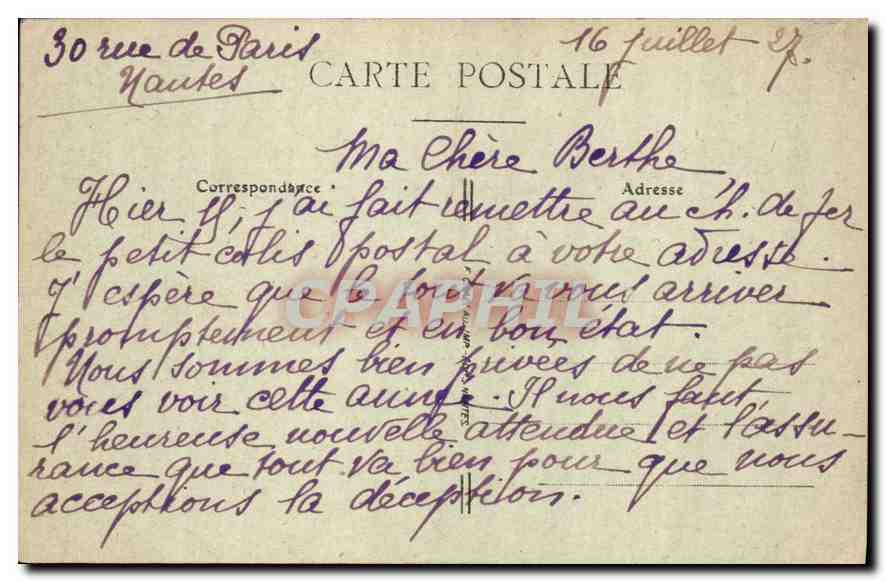 30 rue de Paris
Nantes
16 juillet 27.
CARTE POSTALE
Ma Chère Berthe,
Correspondance
Adresse
Hier 15, j'ai fait remettre au ch. de fer
le petit colis postal à votre adresse.
J'espère que le tout va vous arriver
promptement et en bon état.
Nous sommes bien privées de ne pas
vous voir cette année. Il nous faut
l'heureuse nouvelle attendue et l'assu-
rance que tout va bien pour que nous
acceptions la déception.
CPAPHIL
NANTES